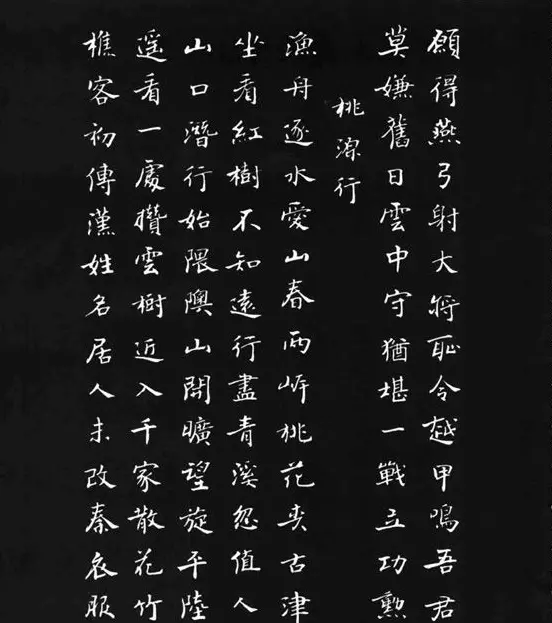 願得燕弓射大將恥令越甲鳴吾君
莫嫌舊日雲中守猶堪一戰立功勳
桃源行
漁舟逐水愛山春兩岸桃花夾古津
坐看紅樹不知遠行盡青溪忽值人
山口潛行始隈隩山開曠望旋平陸
遙看一處攢雲樹近入千家散花竹
樵客初傳漢姓名居人未改秦衣服